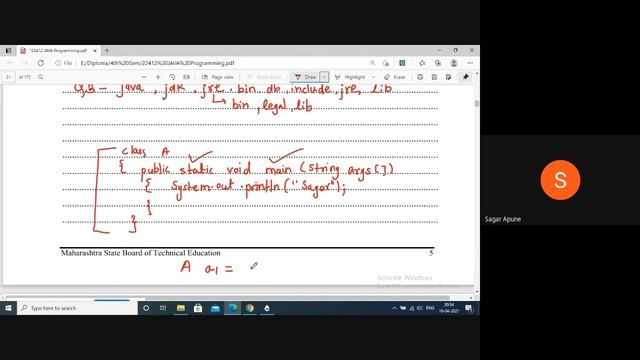 22412 JAVA Programming.pdf
File E:/Diploma/4th%20Sem/22412%20JAVA%20Programming.pdf
21 of 173 Page view Read aloud Draw Highlight Erase
java, jdk, jre. bin, db, include, jre, lib
bin, legal, lib
class A
{ public static void main (String args[])
{ System.out.println("Sagar");
}
}
Maharashtra State Board of Technical Education 5
A a1 =
S
Sagar Apune
Activate Windows
Type here to search
20:54
19-04-2021